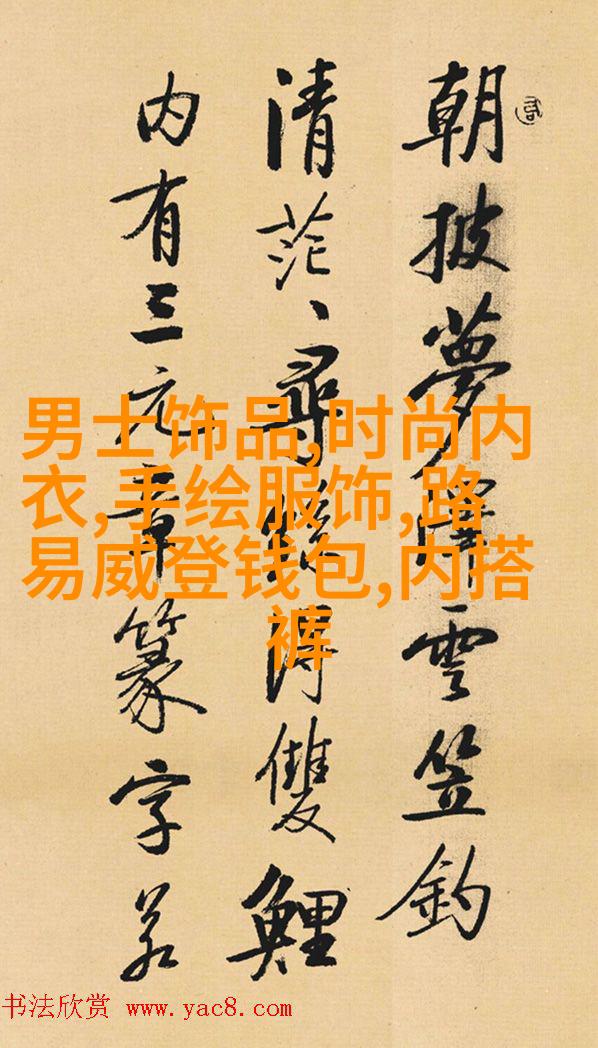 朝披夢澤雲笠釣
清茫、尋絲得雙鯉
内有三元章篆字若
男士饰品,时尚内
衣,手绘服饰,路
易威登钱包,内搭
裤
书法欣赏 www.yac8.com